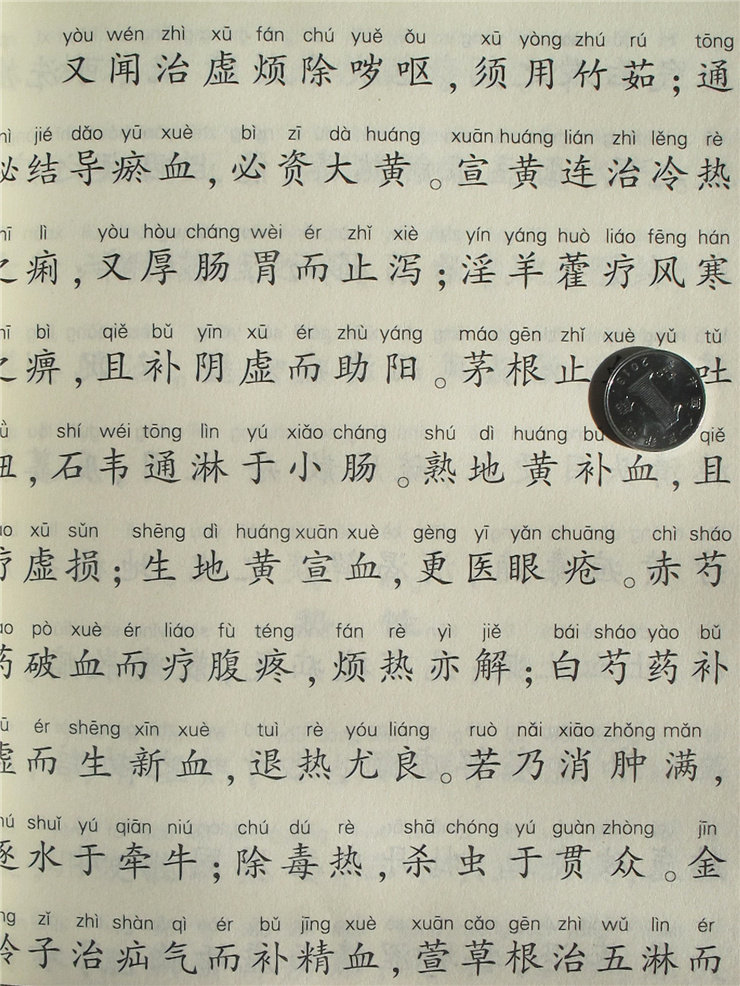 yòu wén zhì xū fán chú yuě ǒu xū yòng zhú rú tōng
又闻治虚烦除哕呕，须用竹茹；通
jié dǎo yū xuè bì zī dà huáng xuān huáng lián zhì lěng rè
秘结导瘀血，必资大黄。宣黄连治冷热
lì yòu hòu cháng wèi ér zhǐ xiè yín yáng huò liáo fēng hán
之痢，又厚肠胃而止泻；淫羊藿疗风寒
bì qiě bǔ yīn xū ér zhù yáng máo gēn zhǐ xuè yǔ tǔ
之痹，且补阴虚而助阳。茅根止吐
shí wéi tōng lìn yú xiǎo cháng shú dì huáng bǔ qiě
衄，石韦通淋于小肠。熟地黄补，且
xū sǔn shēng dì huáng xuān xuè gèng yī yǎn chuāng chì sháo
疗虚损；生地黄宣血，更医眼疮。赤芍
pò xuè ér liáo fù téng fán rè yì jiě bái sháo yào bǔ
药破血而疗腹疼，烦热亦解；白芍药补
ér shēng xīn xuè tuì rè yóu liáng ruò nǎi xiāo zhǒng mǎn
虚而生新血，退热尤良。若乃消肿满，
shuǐ yú qiān niú chú dú rè shā chóng yú guàn zhòng jīn
逐水于牵牛；除毒热，杀虫于贯众。金
zǐ zhì shàn qì ér bǔ jīng xuè xuān cǎo gēn zhì wǔ lìn ér
铃子治疝气而补精血，萱草根治五淋而